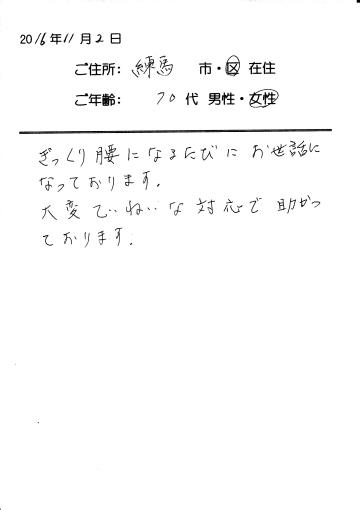 2016年11月2日
ご住所: 練馬 市・区 在住
ご年齢: 70代 男性・女性
ぎっくり腰になるたびに お世話に
なっております。
大変ていねいな対応で助かっ
ております。